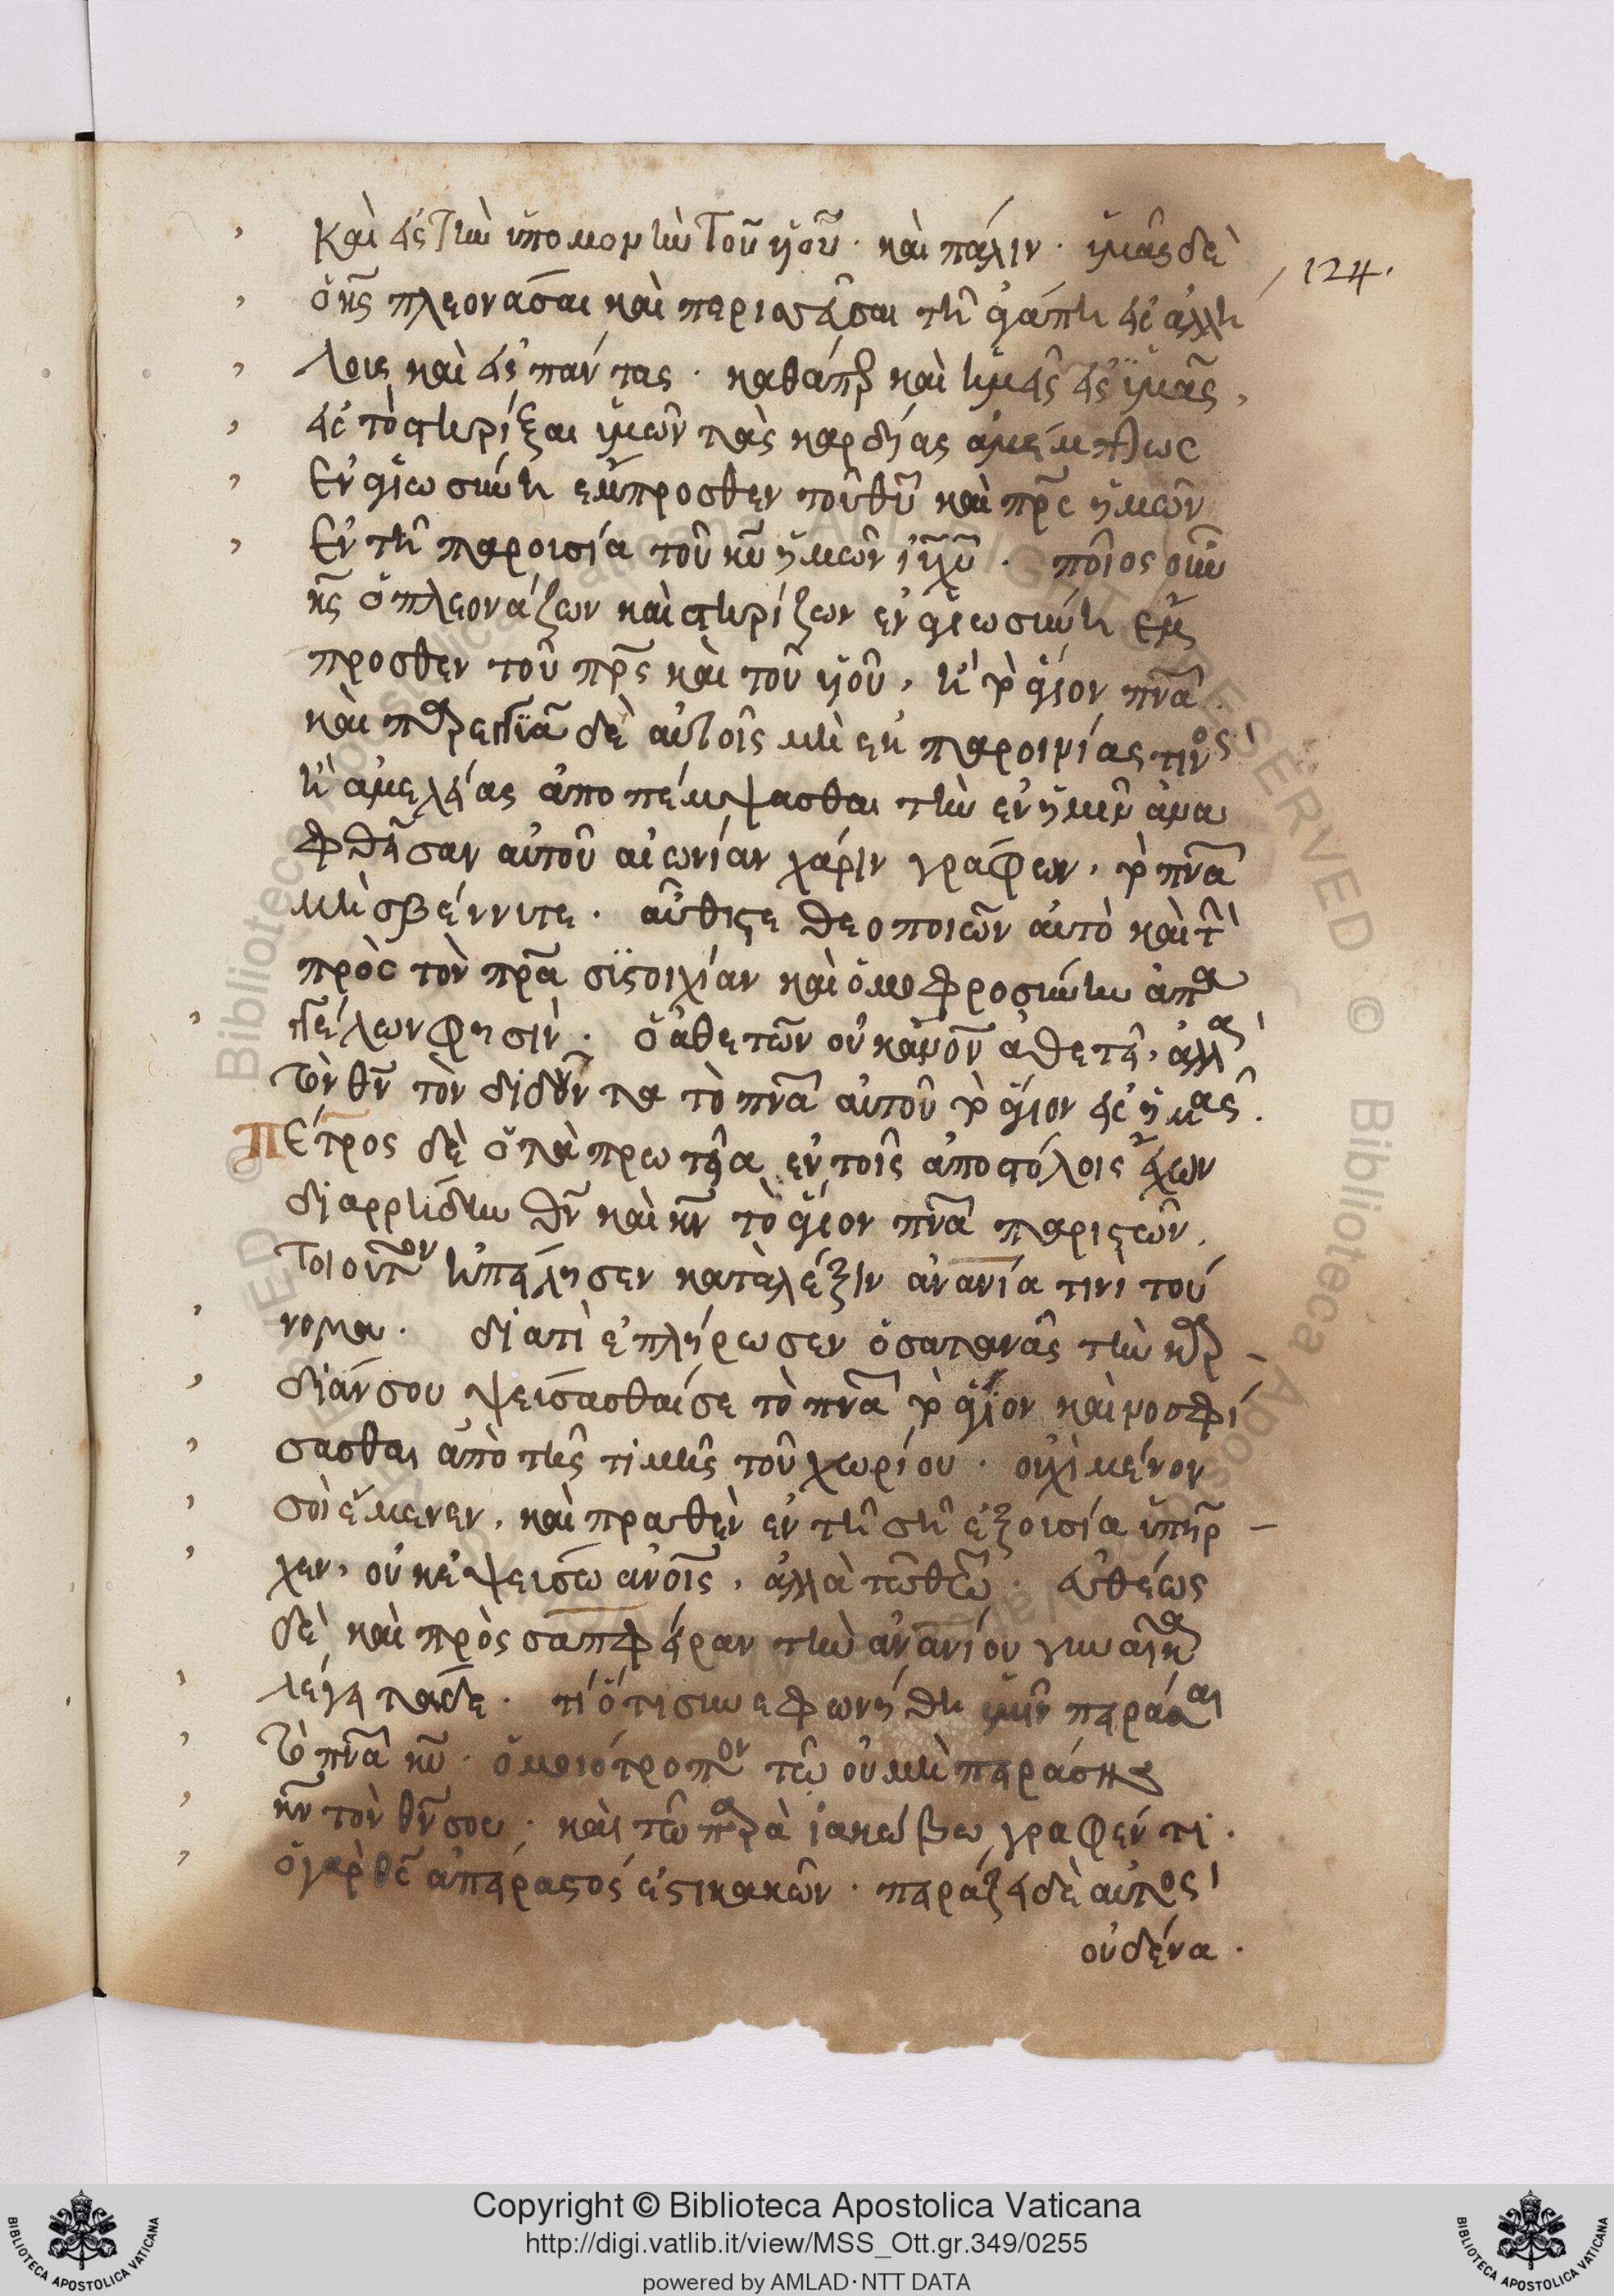 καὶ εἰς τὴν ὑπομονὴν τοῦ χυ̅ · καὶ πάλιν · ὑμᾶς δὲ
124.
ὁ κς̅ πλεονάσαι καὶ περισσεῦσαι τῆ ἀγάπη εἰς ἀλλή
λοις καὶ εἰς πάντας · καθάπερ καὶ ἡμεῖς εἰς ὑμᾶς,
εἰς τὸ στηρίξαι ὑμῶν τὰς καρδίας ἀμέμπτως
ἐν ἁγιωσύνη ἔμπροσθεν τοῦ θυ̅ καὶ πρς̅ ἡμῶν
ἐν τῆ παρουσία τοῦ κυ̅ ἡμῶν ιυ̅ χυ̅ · ποῖος οὖν
κς̅ ὁ πλεονάζων καὶ στηρίζων ἐν ἁγιωσύνη ἔμ
προσθεν τοῦ πρς̅ καὶ τοῦ υἱοῦ, ἢ τὸ ἅγιον πνα̅ ·
καὶ δὲ αὐτοῖς μὴ ἐκ παροινίας τινὸς
ἢ ἀμελείας ἀποπέμψασθαι τὴν ἐν ἡμῖν ἀνα
φθεῖσαν αὐτοῦ αἰωνίαν χάριν γράφων, τὸ πνα̅
μὴ σβέννυτε · αὖθίς τε θεοποιῶν αὐτὸ καὶ τὴν
πρὸς τὸν πρα̅ συστοιχίαν καὶ ὁμοφροσύνην ἀπα
γγέλων φησὶν · ὁ ἀθετῶν οὐκ ἄνον̅ ἀθετεῖ, ἀλλὰ
τὸν θν̅ τὸν διδόντα τὸ πνα̅ αὐτοῦ τὸ ἅγιον εἰς ἡμᾶς ·
Πέτρος δὲ ὁ τὰ πρωτεῖα ἐν τοῖς ἀποστόλοις ἔχων
διαρρήδην θν̅ καὶ κν̅ τὸ ἅγιον πνα̅ παριστῶν,
τοιοῦτον ἠπείλησεν κατὰ λέξιν ἀνανία τινὶ τοὔ
νομα · διατὶ ἐπλήρωσεν ὁ σατανᾶς τὴν καρ -
δίαν σου ψεύσασθαί σε τὸ πνα̅ τὸ ἅγιον καὶ νοσφί
σασθαι ἀπὸ τῆς τιμῆς τοῦ χωρίου · οὐχὶ μένον
σοὶ ἔμενεν, καὶ πραθὲν ἐν τῆ σῆ ἐξουσία ὑπῆρ -
χεν, οὐκ ἐψεύσω ἀνοις̅, ἀλλὰ τῶ θω̅ · εὐθέως
δὲ καὶ πρὸς σαπφείραν τὴν ἀνανίου γυναῖκα
λέγει τάδε · τί ὅτι συνεφωνήθη ὑμῖν πειράσαι
τὸ πνα̅ κυ̅ · ὁμοιότροπον τῶ οὐ μὴ πειράσης
κν̅ τὸν θν̅ σου · καὶ τῶ παρὰ ἰακώβω γραφέντι ·
ὁ γὰρ θς̅ ἀπείραστός ἐστι κακῶν · πειράζει δὲ αὐτὸς
οὐδένα ·
Copyright © Biblioteca Apostolica Vaticana
http://digi.vatlib.it/view/MSS_Ott.gr.349/0255
powered by AMLAD·NTT DATA
BIBLIOTECA APOSTOLICA VATICANA
BIBLIOTECA APOSTOLICA VATICANA